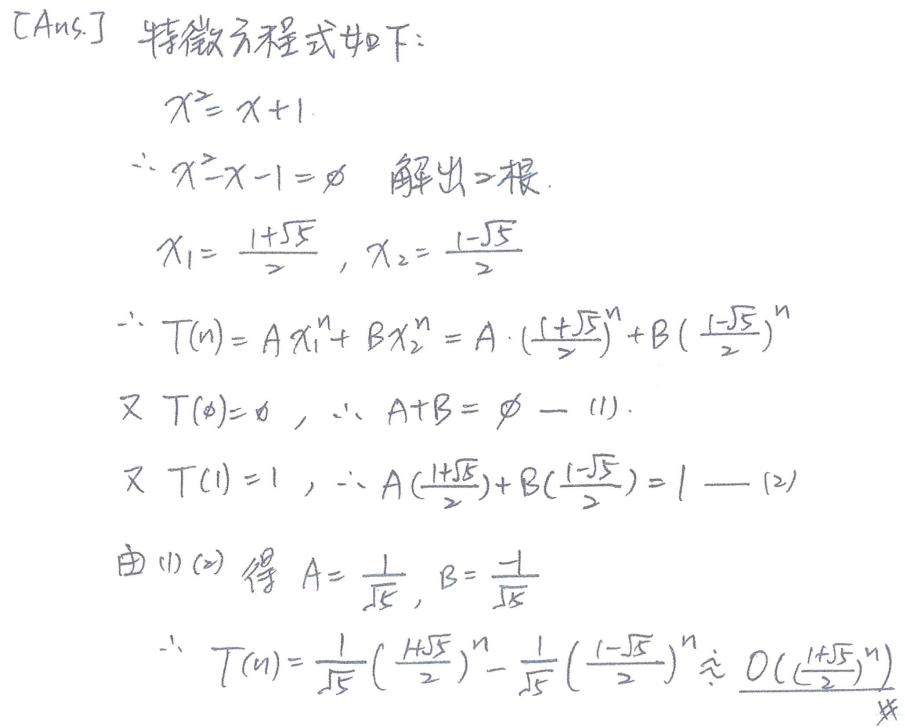 [Ans.] 特徵方程式如下:
x²= x+1.
∴ x²-x-1=ø 解出二根.
x₁= (1+√5)/2 , x₂= (1-√5)/2
∴ T(n)= A x₁ⁿ+ Bx₂ⁿ = A·((1+√5)/2)ⁿ+B((1-√5)/2)ⁿ
又 T(ø)=ø , ∴ A+B= ø — (1).
又 T(1)=1 , ∴ A((1+√5)/2)+B((1-√5)/2)=1 — (2)
由(1)(2) 得 A= 1/√5, B= -1/√5
∴ T(n)= 1/√5((1+√5)/2)ⁿ- 1/√5((1-√5)/2)ⁿ ≈ O(((1+√5)/2)ⁿ)
#